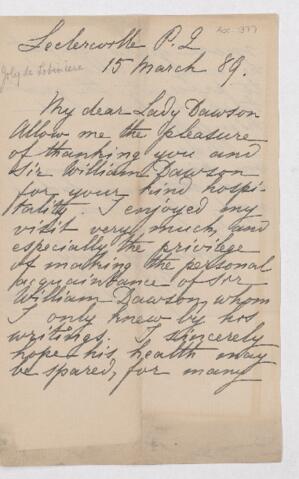 Leclercville P. Q
15 March 89.
Joly de Lotbinière
My dear Lady Dawson
Allow me the pleasure
of thanking you and
Sir William Dawson
for your kind hospi-
tality I enjoyed my
visit very much, and
especially the privilege
of making the personal
acquaintance of Sir
William Dawson, whom
I only knew by his
writings. I sincerely
hope his health may
be spared, for many